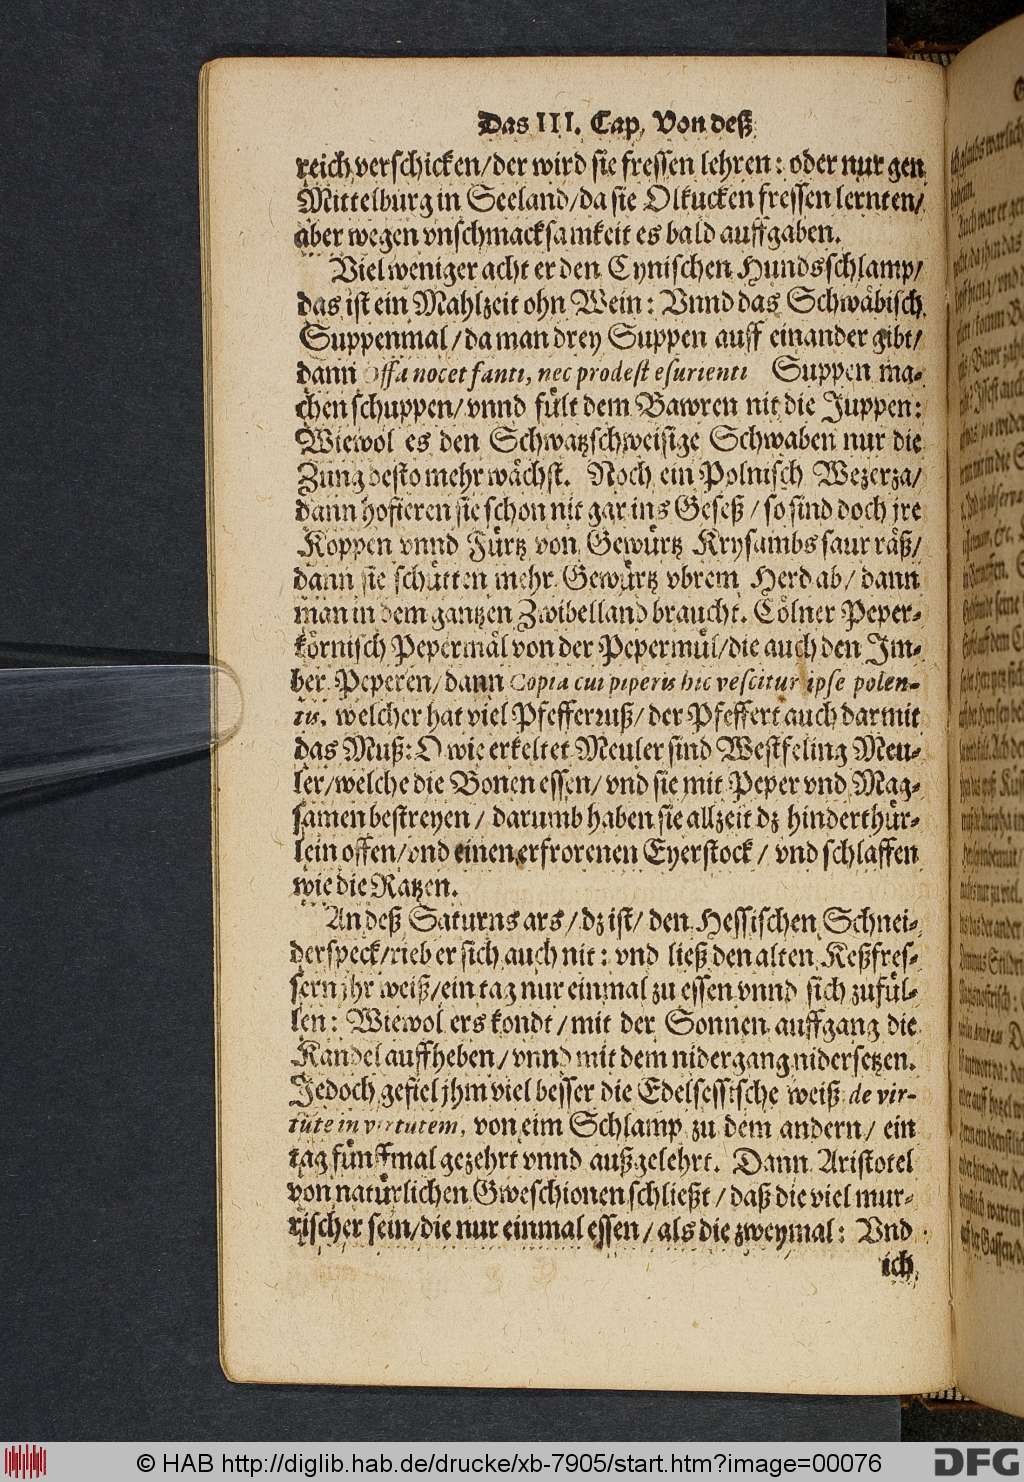 Das III. Cap, Von deß
reich verschicken/der wird sie fressen lehren: oder nur gen
Mittelburg in Seeland/da sie Olkucken fressen lernten/
aber wegen vnschmacksamkeit es bald auffgaben.
Viel weniger acht er den Cynischen Hundsschlamp/
das ist ein Mahlzeit ohn Wein: Vnnd das Schwäbisch
Suppenmal/da man drey Suppen auff einander gibt/
dann Offa nocet fanti, nec prodest esurienti Suppen ma-
chen schuppen/vnnd fült dem Bawren nit die Juppen:
Wiewol es den Schwatzschweisige Schwaben nur die
Zung desto mehr wächst. Noch ein Polnisch Wezerza/
dann hofieren sie schon nit gar ins Geseß/so sind doch jre
Koppen vnnd Fürtz von Gewürtz Krysambs saur räß/
dann sie schütten mehr Gewürtz vbrem Herd ab/dann
man in dem gantzen Zwibelland braucht. Cölner Peper-
körnisch Pepermäl von der Pepermül/die auch den Im-
ber Peperen/dann Copia cui piperis hic vescitur ipse polen-
tis, welcher hat viel Pfefferruß/der Pfeffert auch darmit
das Muß: O wie erkeltet Meuler sind Westfeling Meu-
ler/welche die Bonen essen/vnd sie mit Peper vnd Mag-
samen bestreyen/darumb haben sie allzeit dz hinderthür-
lein offen/vnd einen erfrorenen Eyerstock/vnd schlaffen
wie die Ratzen.
An deß Saturns ars/dz ist/den Hessischen Schnei-
derspeck/rieb er sich auch nit: vnd ließ den alten Keßfres-
sern jhr weiß/ein tag nur einmal zu essen vnnd sich zufül-
len: Wiewol ers kondt/mit der Sonnen auffgang die
Kandel auffheben/vnnd mit dem nidergang nidersetzen.
Jedoch gefiel jhm viel besser die Edelsessische weiß de vir-
tute in virtutem, von eim Schlamp zu dem andern/ein
tag fünffmal gezehrt vnnd außgelehrt. Dann Aristotel
von natürlichen Gweschionen schließt/daß die viel mur-
rischer sein/die nur einmal essen/als die zweymal: Vnd
ich
© HAB http://diglib.hab.de/drucke/xb-7905/start.htm?image=00076
DFG